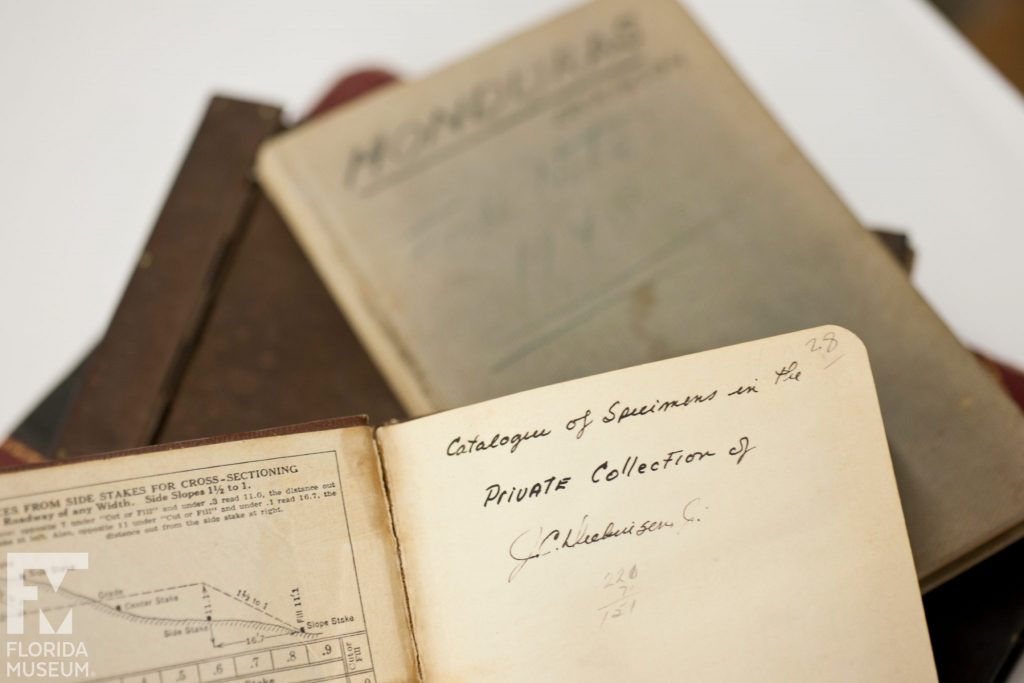 HONDURAS
28
Catalogue of Specimens in the
PRIVATE Collection of
J.C. Dickinson, Jr.
226
151
CES FROM SIDE STAKES FOR CROSS-SECTIONING
Roadway of any Width. Side Slopes 1½ to 1.
opposite 7 under "Cut or Fill" and under .3 read 11.0, the distance out
Also, opposite 11 under "Cut or Fill" and under .1 read 16.7, the
distance out from the side stake at right.
Grade
1½ to 1
Center Stake
11.1
Fill 11.1
Side Stake
Slope Stake
16.7
.4 .5 .6 .7 .8 .9
Cut or Fill
FLORIDA
MUSEUM